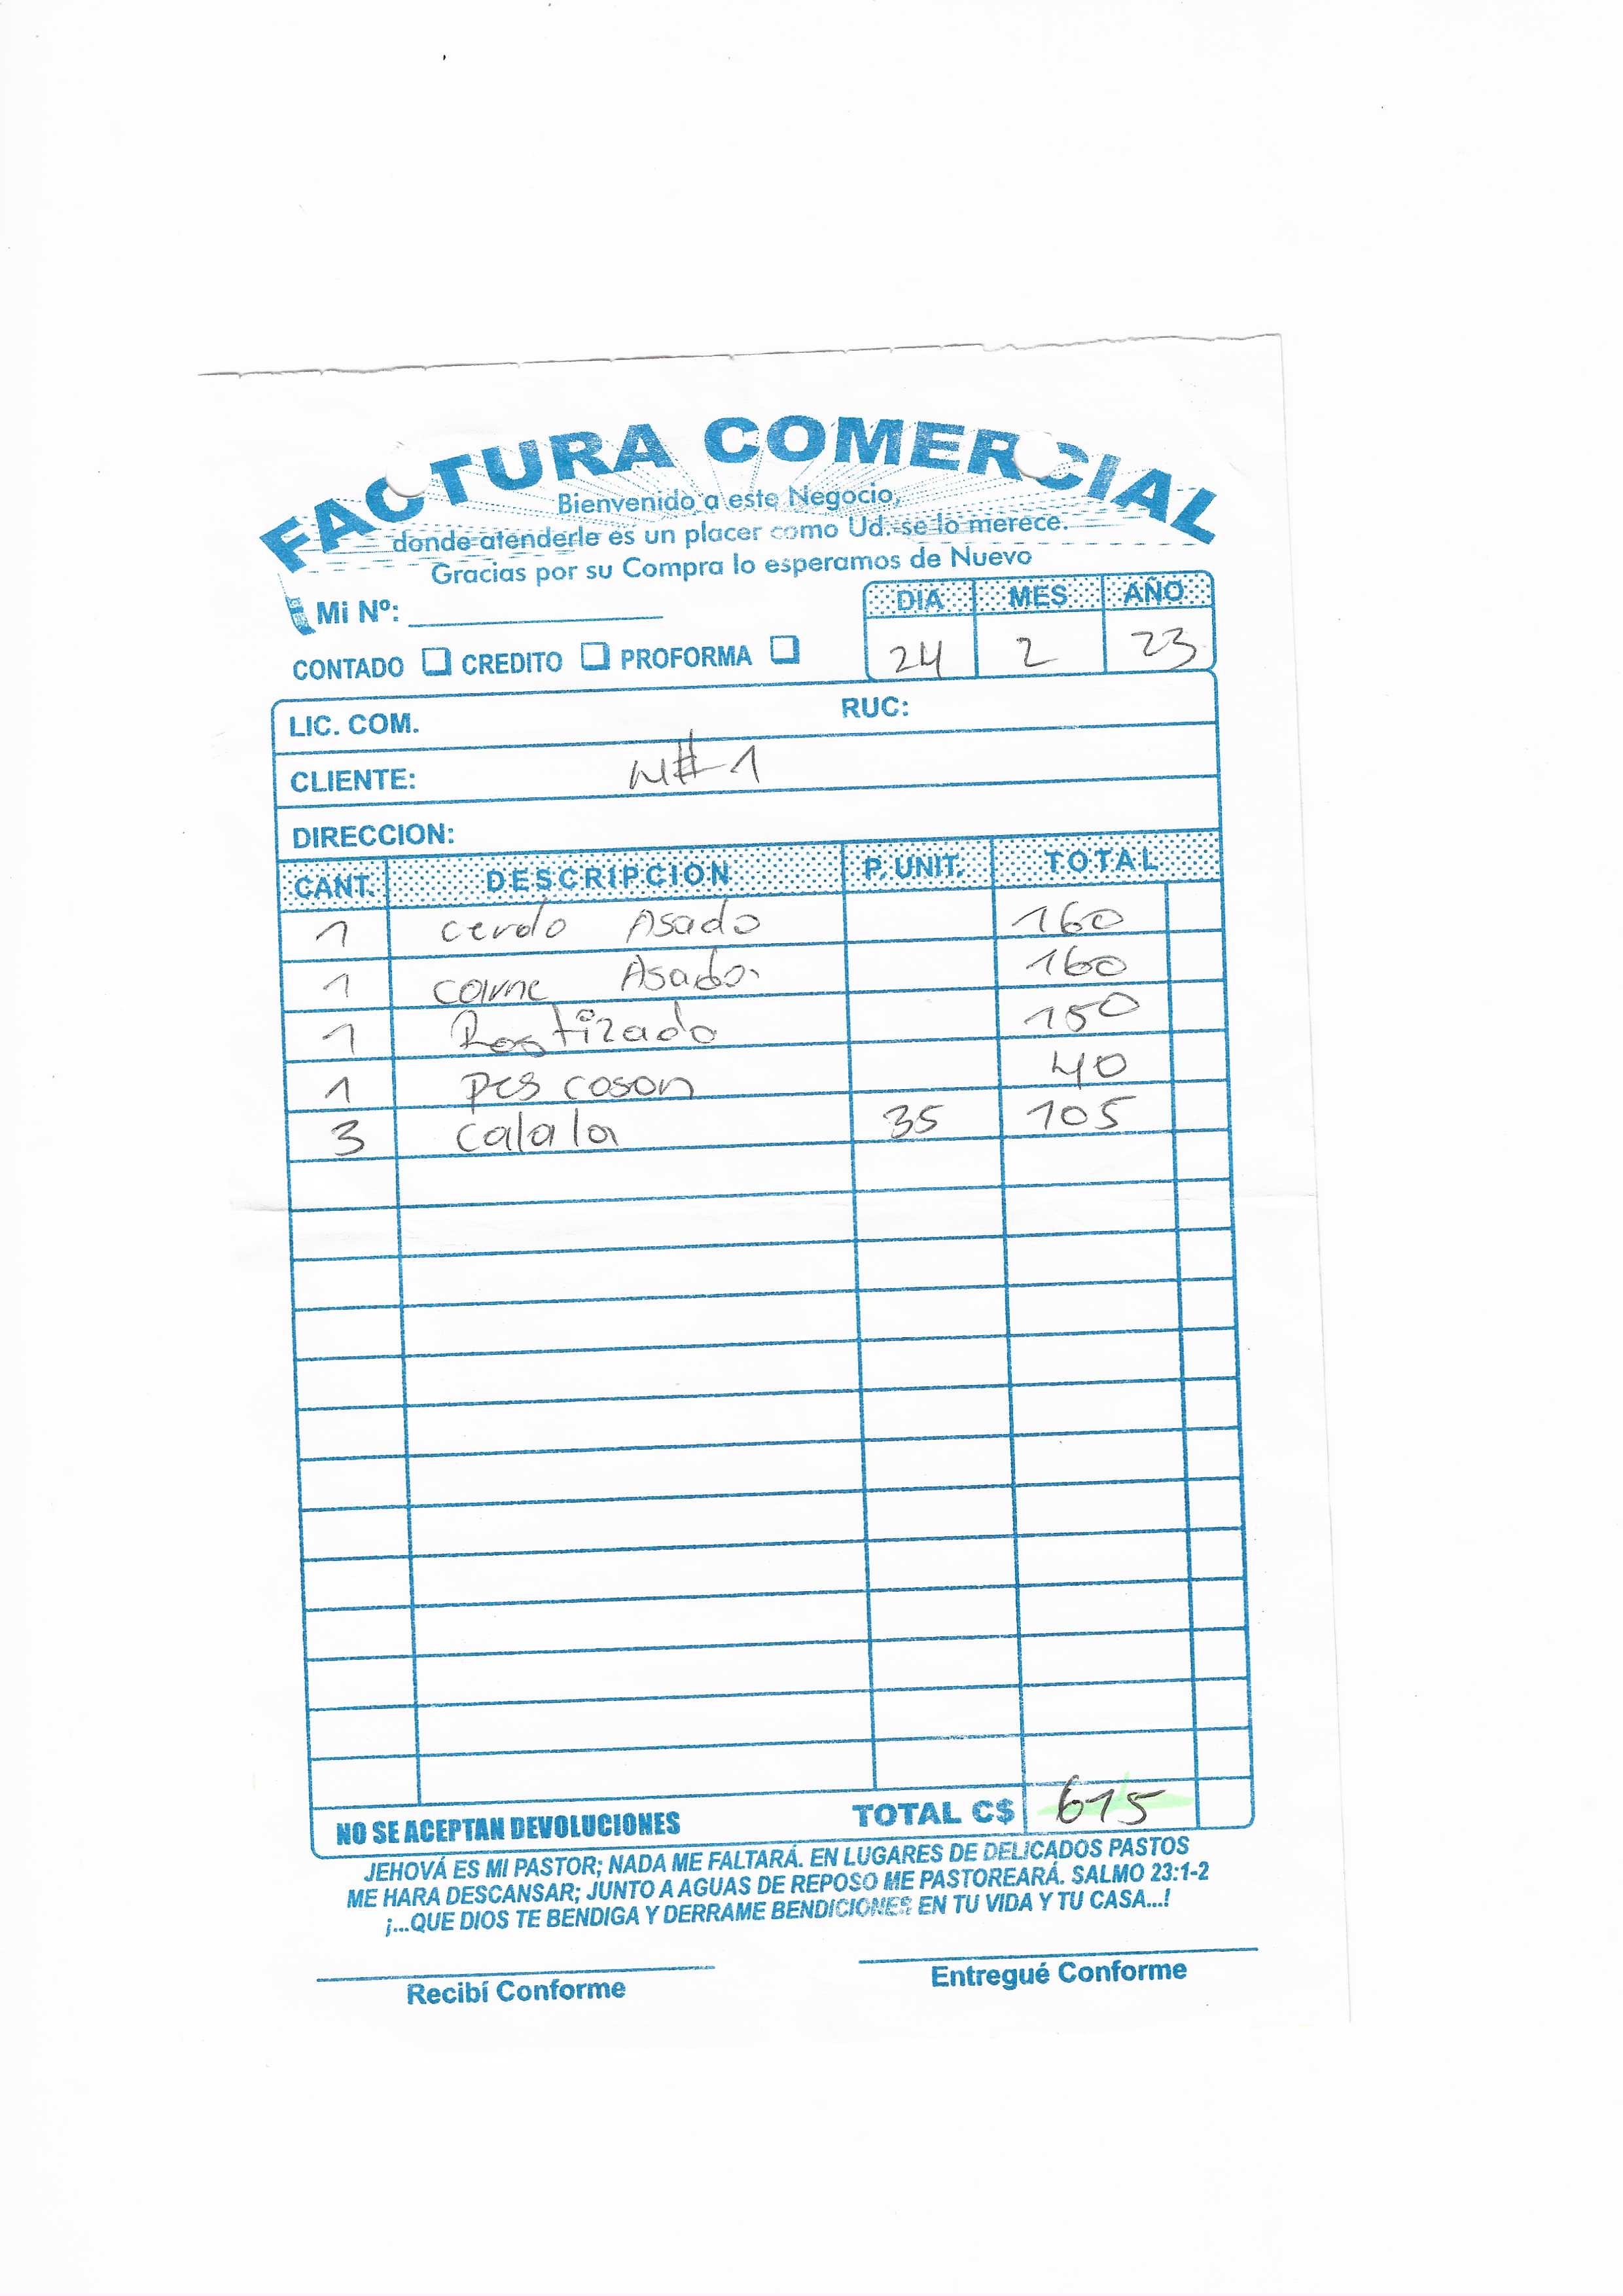 FACTURA COMERCIAL
Bienvenido a este Negocio,
donde atenderle es un placer como Ud. se lo merece.
Gracias por su Compra lo esperamos de Nuevo
Mi Nº:
DIA MES AÑO
24 2 23
CONTADO CREDITO PROFORMA
LIC. COM. RUC:
CLIENTE: M#1
DIRECCION:
CANT. DESCRIPCION P. UNIT. TOTAL
1 cerdo Asado 160
1 carne Asado 160
1 Rostizado 150
1 pes coson 40
3 calala 35 105
NO SE ACEPTAN DEVOLUCIONES TOTAL C$ 615
JEHOVÁ ES MI PASTOR; NADA ME FALTARÁ. EN LUGARES DE DELICADOS PASTOS
ME HARA DESCANSAR; JUNTO A AGUAS DE REPOSO ME PASTOREARÁ. SALMO 23:1-2
¡...QUE DIOS TE BENDIGA Y DERRAME BENDICIONES EN TU VIDA Y TU CASA...!
Recibí Conforme Entregué Conforme